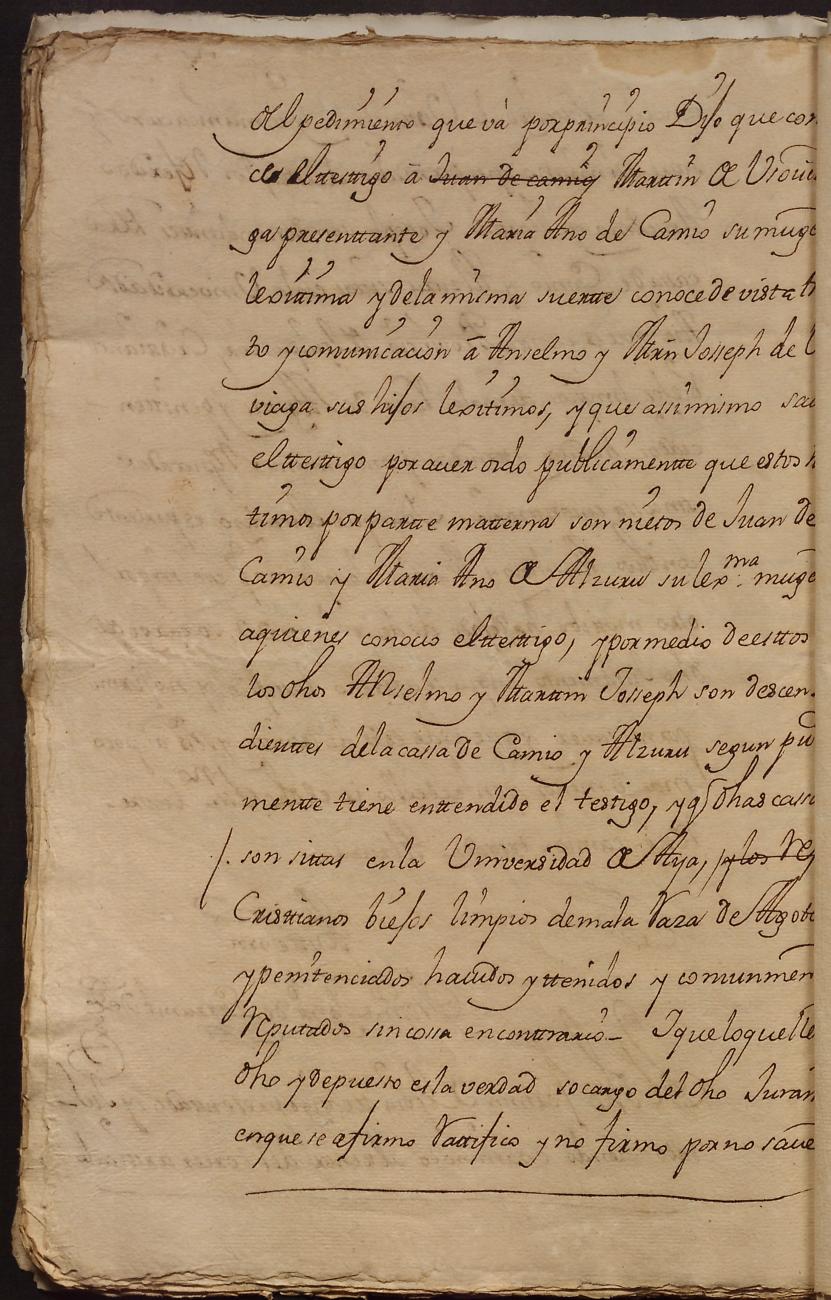 del pedimiento que vá por principio Dijo que con
ce el testigo â Juan de camio Martin de Vrdui
ga presenttante y Maria Ano de Camio su muge
lexittima y de la misma suertte conoce de vista tr
to y comunicacion â Anselmo y Mrn Josseph de U
viaga sus hijos lexitimos, y que assimismo sau
el testtigo por aver oido publicamentte que estos u
timos por partte matterna son nietos de Juan de
Camio y Maria Ano de Alzuru su lexma. muge
a quienes conocio el testtigo, y por medio de esttos
los dhos Anselmo y Marttin Josseph son descen-
dienttes de la cassa de Camio y Alzuru segun pu
mentte tiene enttendido el testigo, y q dhas cass
/. son sittas en la Universidad de Aya, y los Re
Cristtianos biejos limpios de mala Raza de Agote
y penitenciados havidos y ttenidos y comunmen
Reputados sin cossa en conttrario- I que lo que lle
dho y depuesto es la verdad so cargo del dho Juram
en que se afirmo Rattifico y no firmo por no save